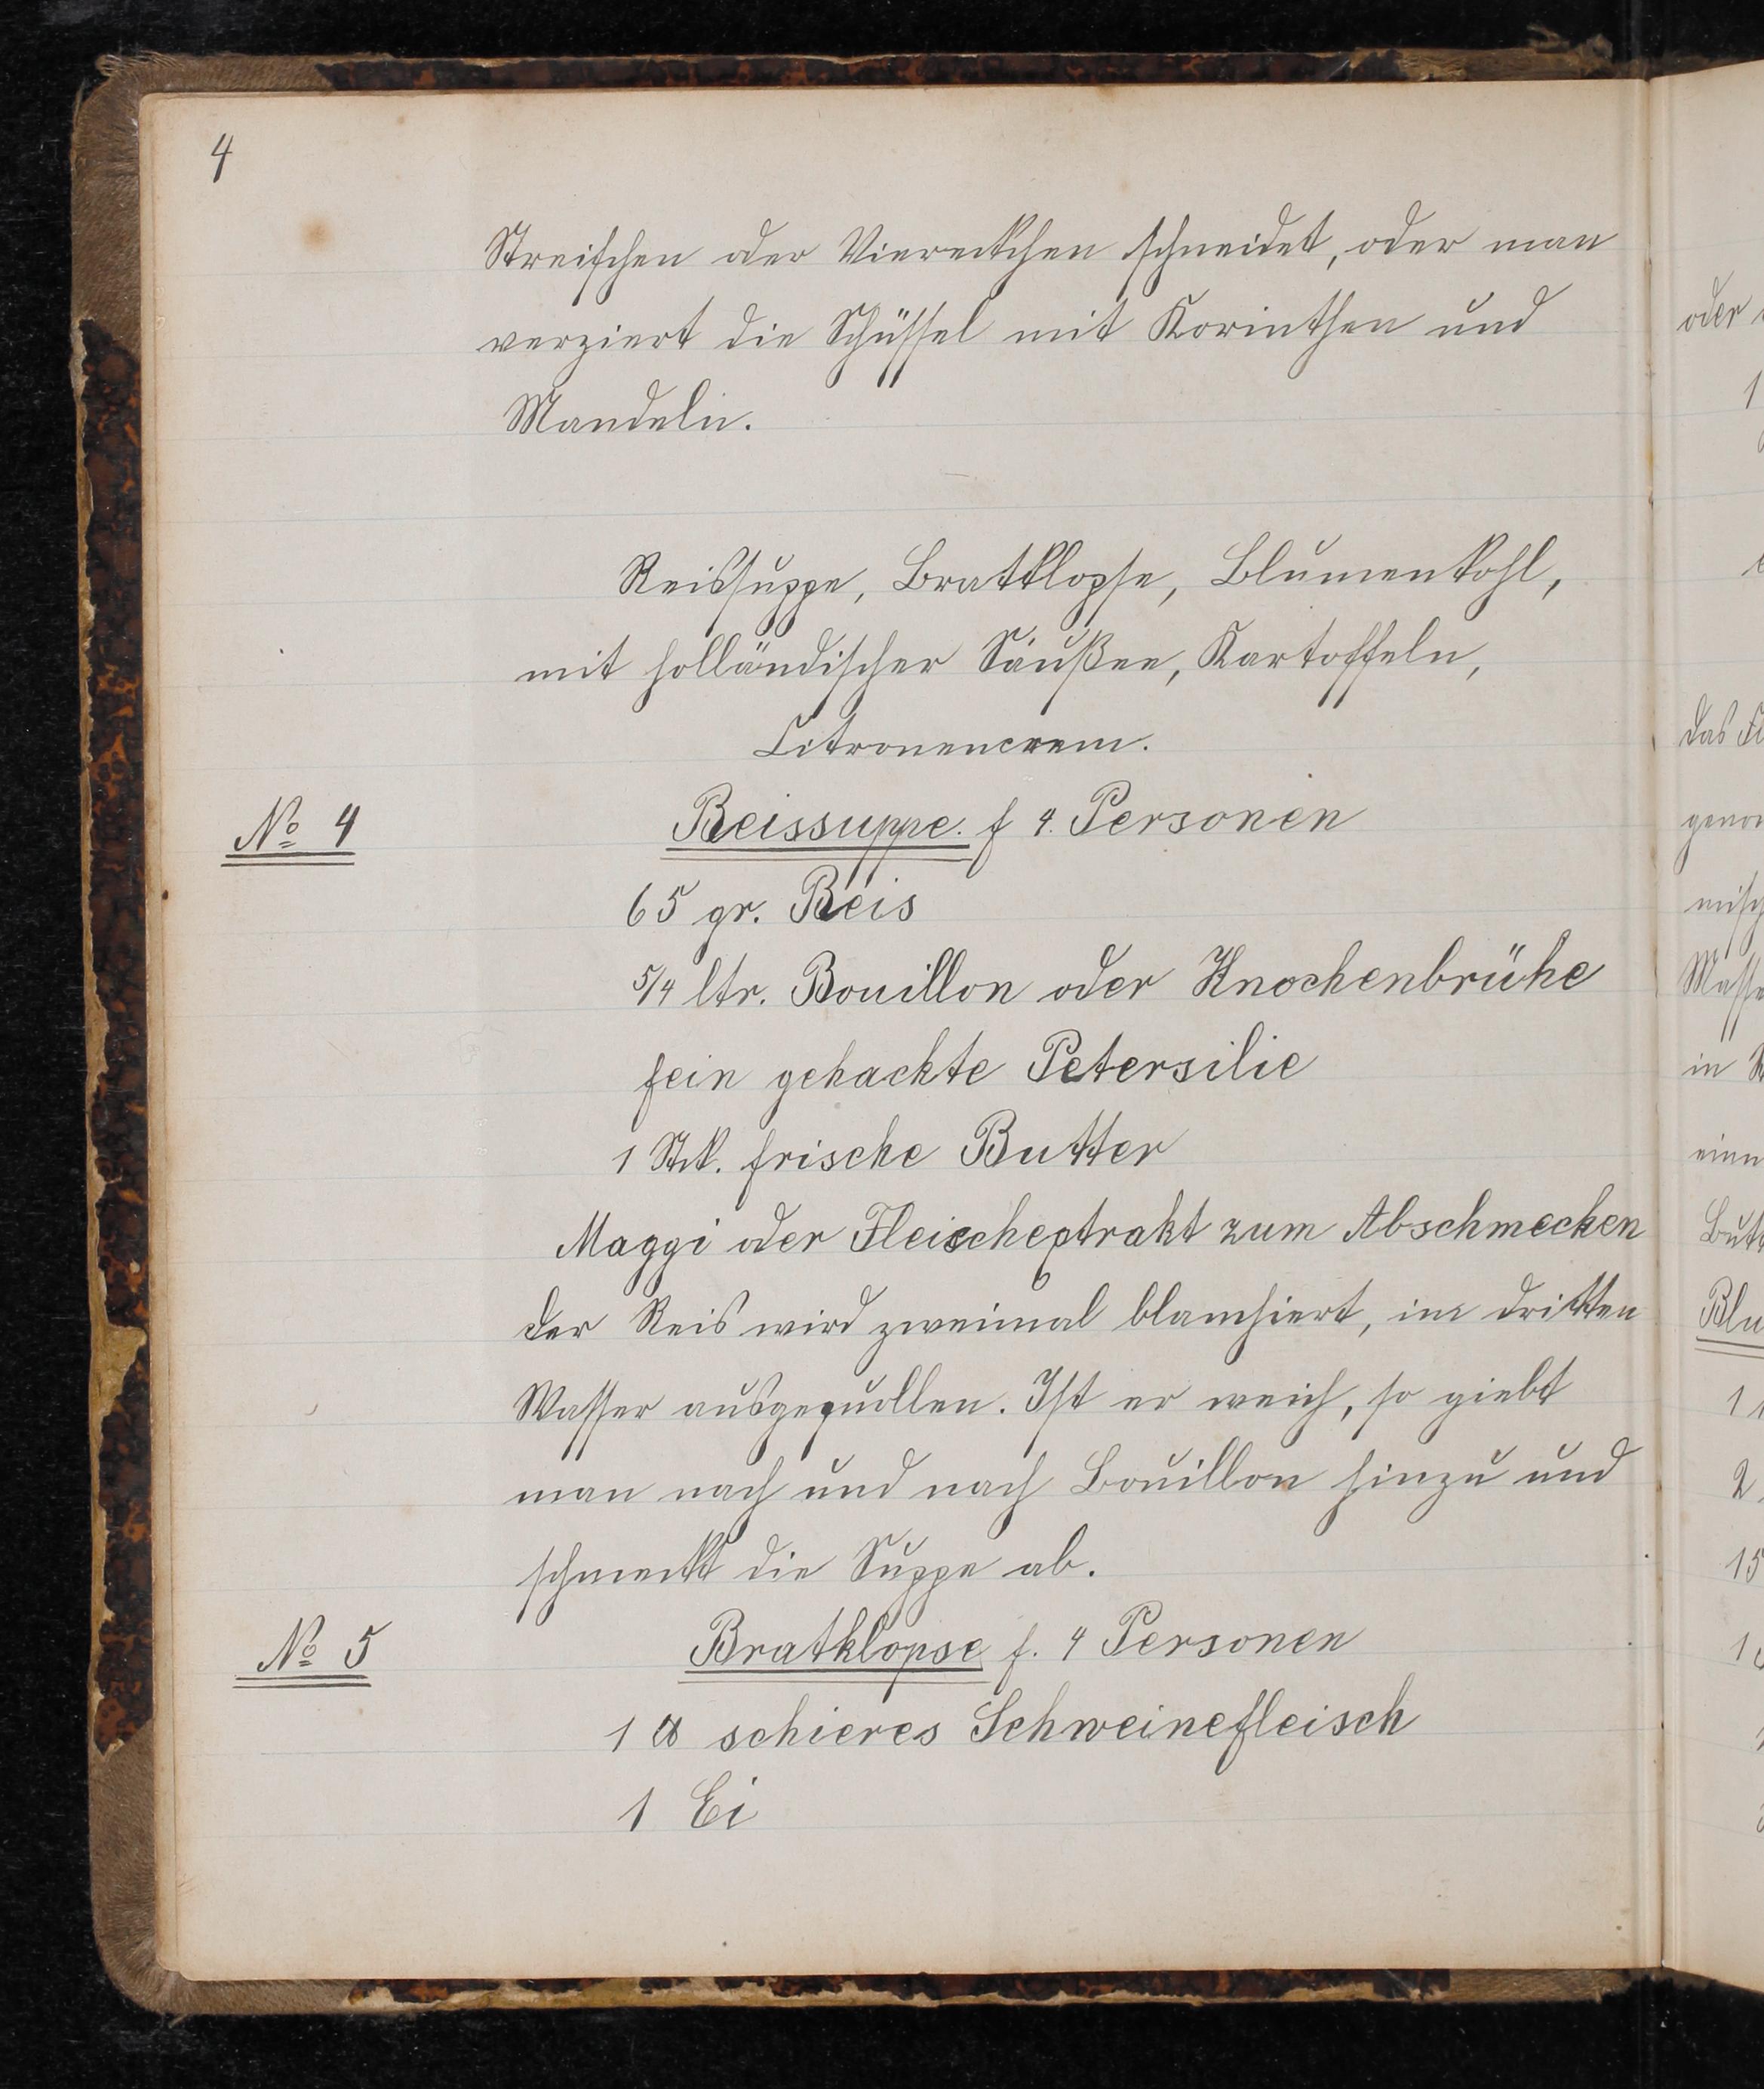 4
Streifchen oder Viereckchen schneidet, oder man
verziert die Schüssel mit Korinthen und
Mandeln.
Reissuppe, Bratklopse, Blumenkohl,
mit holländischer Saußee, Kartoffeln,
Citronencrem.
No 4 Reissuppe. f 4. Personen
65 gr. Reis
5/4 ltr. Bouillon oder Knochenbrühe
fein gehackte Petersilie
1 Stck. frische Butter
Maggi oder Fleischextrakt zum Abschmecken
der Reis wird zweimal blanchiert, im dritten
Wasser ausgequollen. Ist er weich, so giebt
man nach und nach Bouillon hinzu und
schmeckt die Suppe ab.
No 5 Bratklopse f. 4 Personen
1 ℔ schieres Schweinefleisch
1 Ei
oder
1
das
in
1
2
15